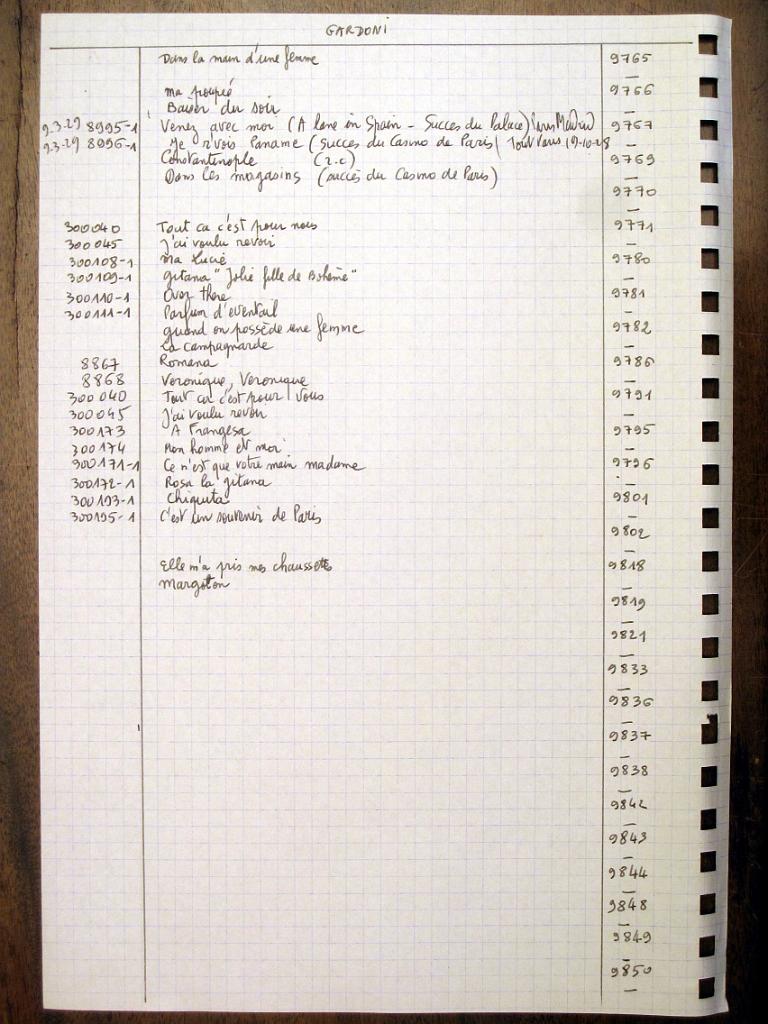 GARDONI
Dans la main d'une femme 9765
—
ma poupée 9766
Baiser du soir —
9.3.29 8995-1 Venez avec moi (A lane in Spain - Succes du Palace) 9767
9.3.29 8996-1 Je r'vois Paname (succes du Casino de Paris) Tout Paris 19-10-28 —
Constantinople (2.c) 9769
Dans les magasins (succès du Casino de Paris) —
9770
—
300040 Tout ca c'est pour nous 9771
300045 J'ai voulu revoir —
300108-1 Ma Lucie 9780
300109-1 gitana "Jolie fille de Bohème" —
300110-1 Over there 9781
300111-1 Parfum d'eventail —
quand on possède une femme 9782
La campagnarde —
8867 Romana 9786
8868 Veronique, Veronique —
300040 Tout ca c'est pour vous 9791
300045 J'ai voulu revoir —
300173 A Frangesa 9795
300174 Mon homme et moi —
300171-1 Ce n'est que votre main madame 9796
300172-1 Rosa la gitana —
300193-1 Chiquita 9801
300195-1 C'est un souvenir de Paris —
9802
—
Elle m'a pris mes chaussettes 9818
Margoton —
9819
—
9821
—
9833
—
9836
—
9837
—
9838
—
9842
—
9843
—
9844
—
9848
—
9849
—
9850
—